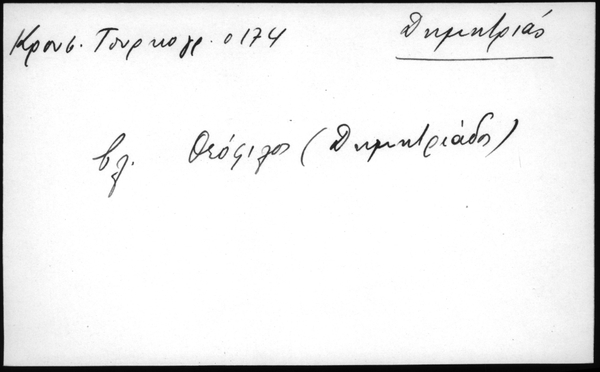 Κρουσ. Τουρκογρ. σ 174
Δημητριάς
βλ. Θεόφιλος (Δημητριάδος)